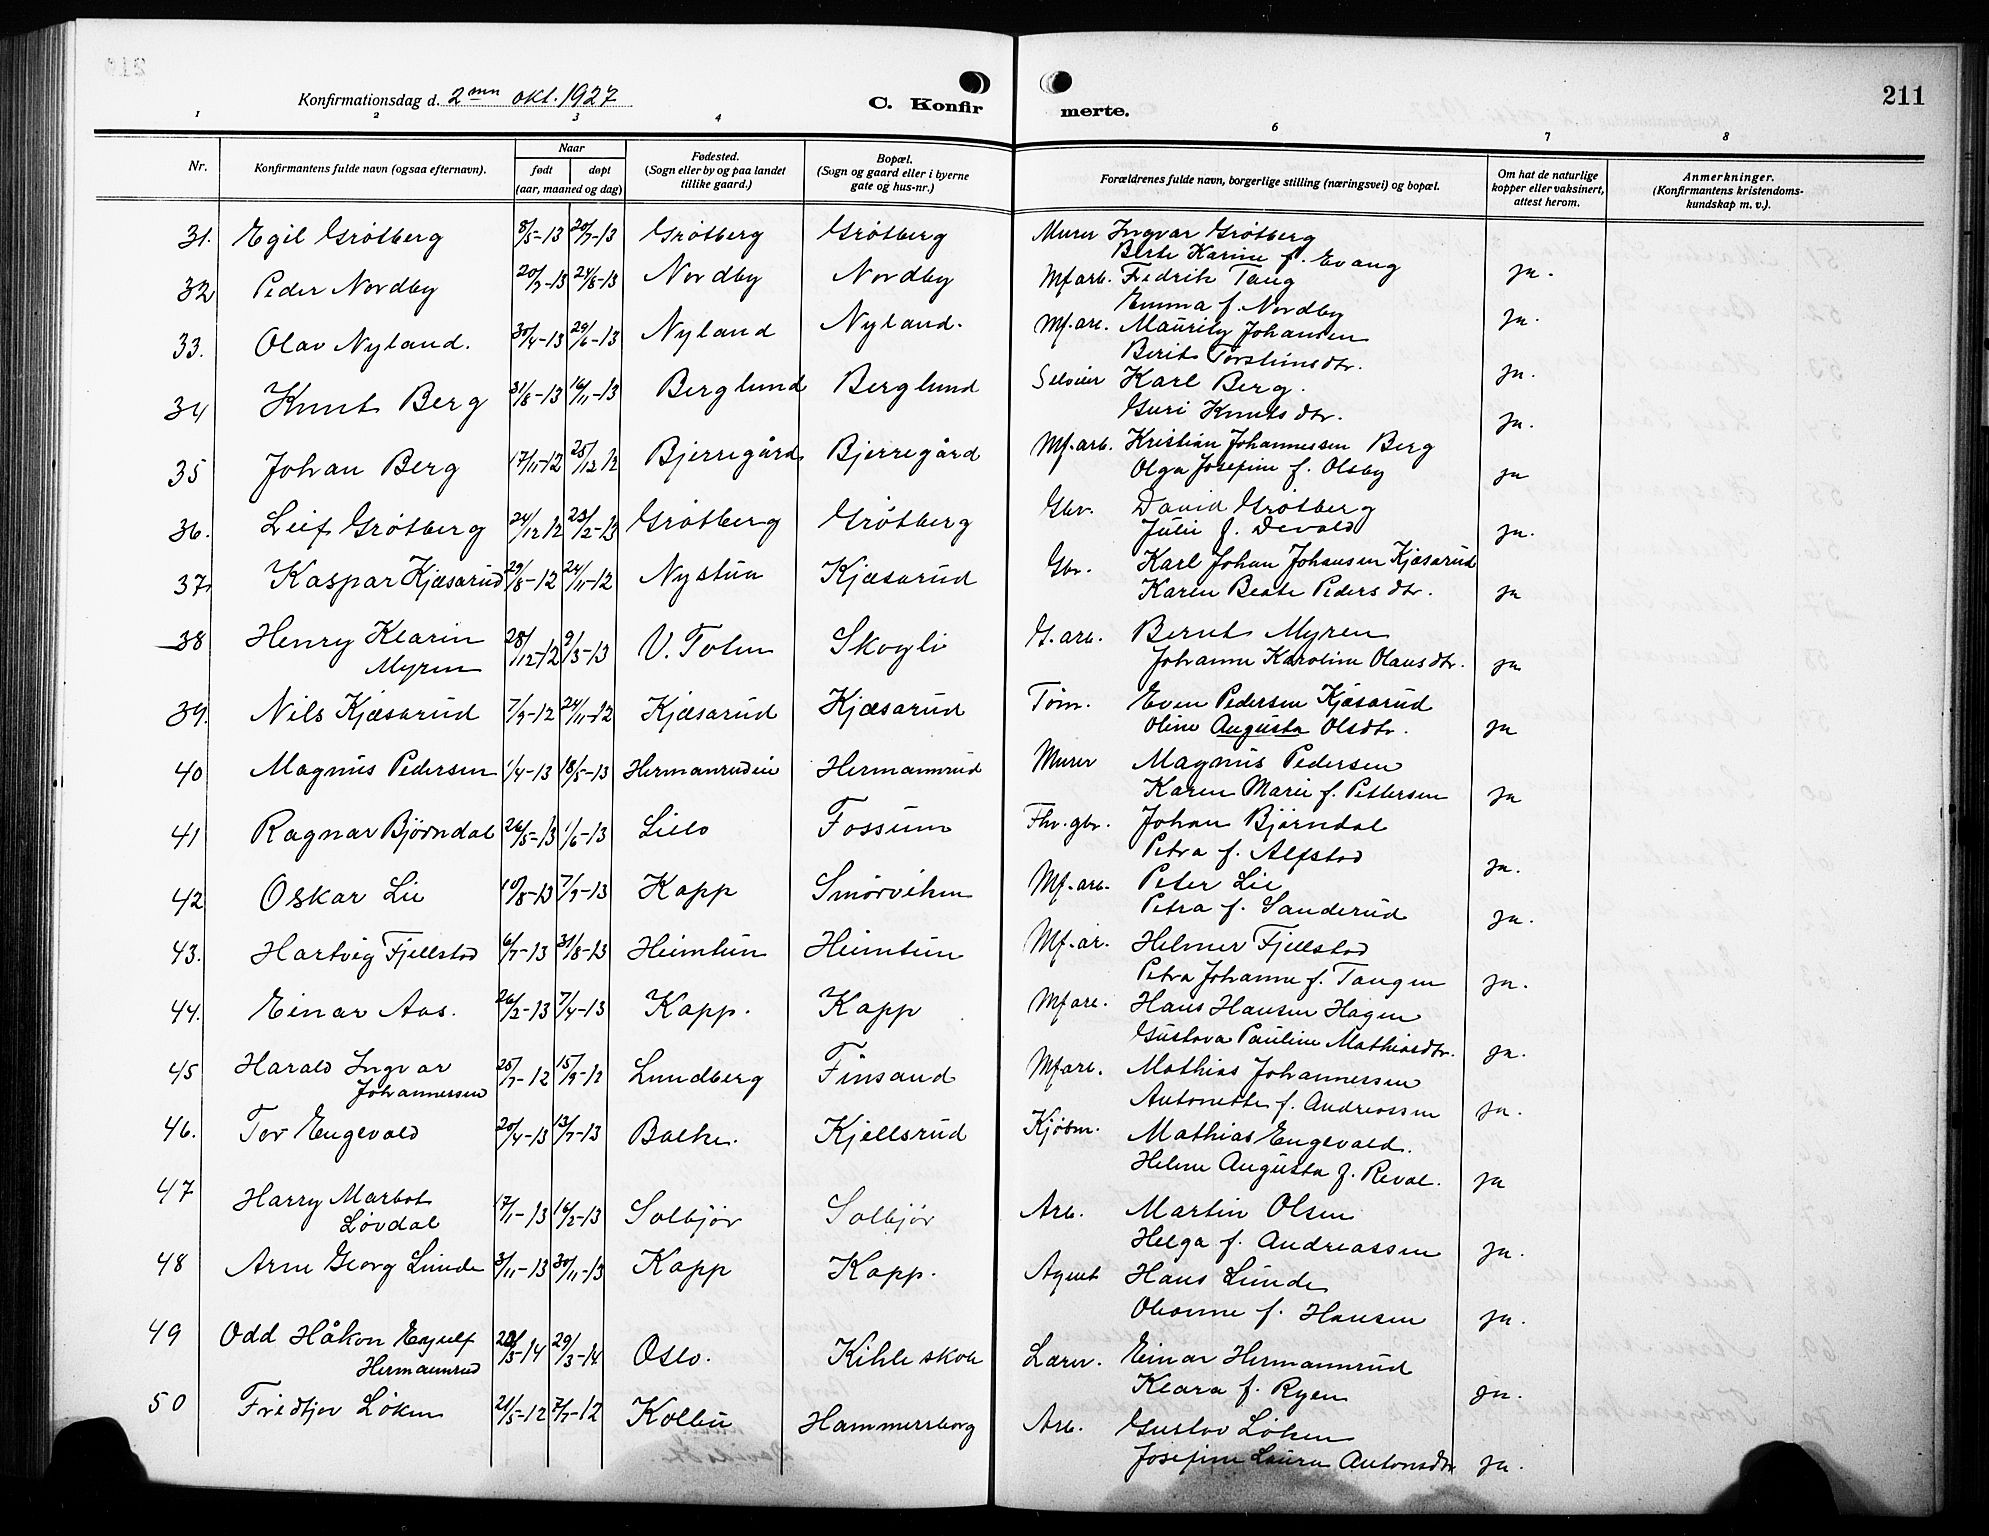 211
Konfirmationsdag d. 2den okt. 1927
C. Konfirmerte.
1 2 3 4 6 7 8
Nr. Konfirmantens fulde navn (ogsaa efternavn). Naar født døpt (aar, maaned og dag) Fødested. (Sogn eller by og paa landet tillike gaard.) Bopæl. (Sogn og gaard eller i byerne gate og hus-nr.) Forældrenes fulde navn, borgerlige stilling (næringsvei) og bopæl. Om hat de naturlige kopper eller vaksinert, attest herom. Anmerkninger. (Konfirmantens kristendomskundskap m. v.).
31. Egil Grøtberg 8/5-13 20/7-13 Grøtberg Grøtberg Murer Ingvar Grøtberg
Berte Karine f. Evang ja.
32 Peder Nordby 20/7-13 24/8-13 Nordby Nordby Mf arb. Fredrik Tang
Emma f. Nordby ja.
33. Olav Nyland. 30/4-13 29/6-13 Nyland Nyland. Mf. are. Mauritz Johansen
Berit Torsteinsdtr. ja.
34 Knut Berg 31/8-13 16/11-13 Berglund Berglund Selveier Karl Berg.
Guri Knutsdtr. ja.
35 Johan Berg 17/11-12 25/12 12 Bjerregård Bjerregård Mf-arb. Kristian Johannessen Berg
Olga Josefine f. Olsby ja
36. Leif Grøtberg 24/12 12 23/2-13 Grøtberg Grøtberg Gbr. David Grøtberg
Julie f. Devold ja.
37. Kaspar Kjæsarud 29/8-12 24/11-12 Nystua Kjæsarud Gbr. Karl Johan Johansen Kjæsarud
Karen Beate Pedersdtr. ja
38 Henry Klarin 28/12-12 9/3-13 V. Toten Skogli G. arb. Bernt Myren
Myren Johanne Karoline Olausdtr. ja
39. Nils Kjæsarud 7/9-12 24/11-12 Kjæsarud Kjæsarud Tøm. Even Pedersen Kjæsarud
Oline Augusta Olsdtr. ja
40 Magnus Pedersen 1/4-13 18/5-13 Hermanrudeie Hermannrud Murer Magnus Pedersen
Karen Marie f. Pettersen ja
41 Ragnar Bjørndal 26/5-13 1/6-13 Lillo Fossum Fhv. gbr. Johan Bjørndal
Petra f. Alfstad ja.
42 Oskar Lie 10/8-13 7/9-13 Kapp Smørviken Mf-arb. Peter Lie
Petra f. Sanderud ja.
43. Hartvig Fjellstad 6/7-13 31/8-13 Heimtun Heimtun Mf-ar. Helmer Fjellstad
Petra Johanne f. Tangen ja.
44. Einar Aas. 26/2-13 7/4-13 Kapp. Kapp Mf are. Hans Hansen Hagen
Gustava Pauline Mathiasdtr. ja.
45 Harald Ingvar 25/7-12 15/9-12 Lundberg Finsand Mf are. Mathias Johannersen
Johannersen Antonette f. Andreassen ja.
46. Tor Engevald 20/4-13 13/7-13 Balke. Kjellsrud Kjøbm. Mathias Engevald.
Helene Augusta f. Reval. ja
47 Harry Marbot 17/1-13 16/2-13 Solbjør Solbjør Arb. Martin Olsen
Løvdal Helga f. Andreassen ja.
48 Arne Georg Lunde 3/11-13 30/11-13 Kapp Kapp. Agent Hans Lunde
Oleanne f. Hansen ja.
49 Odd Håkon Eyulf /3-14 29/3-14 Oslo. Kihle skole Lærer. Einar Hermannrud
Hermannrud Klara f. Ryen ja.
50 Fridtjov Løken 21/5-12 7/7-12 Kolbu Hammersborg Arb. Gustav Løken
Josefine Laura Antonsdtr ja.